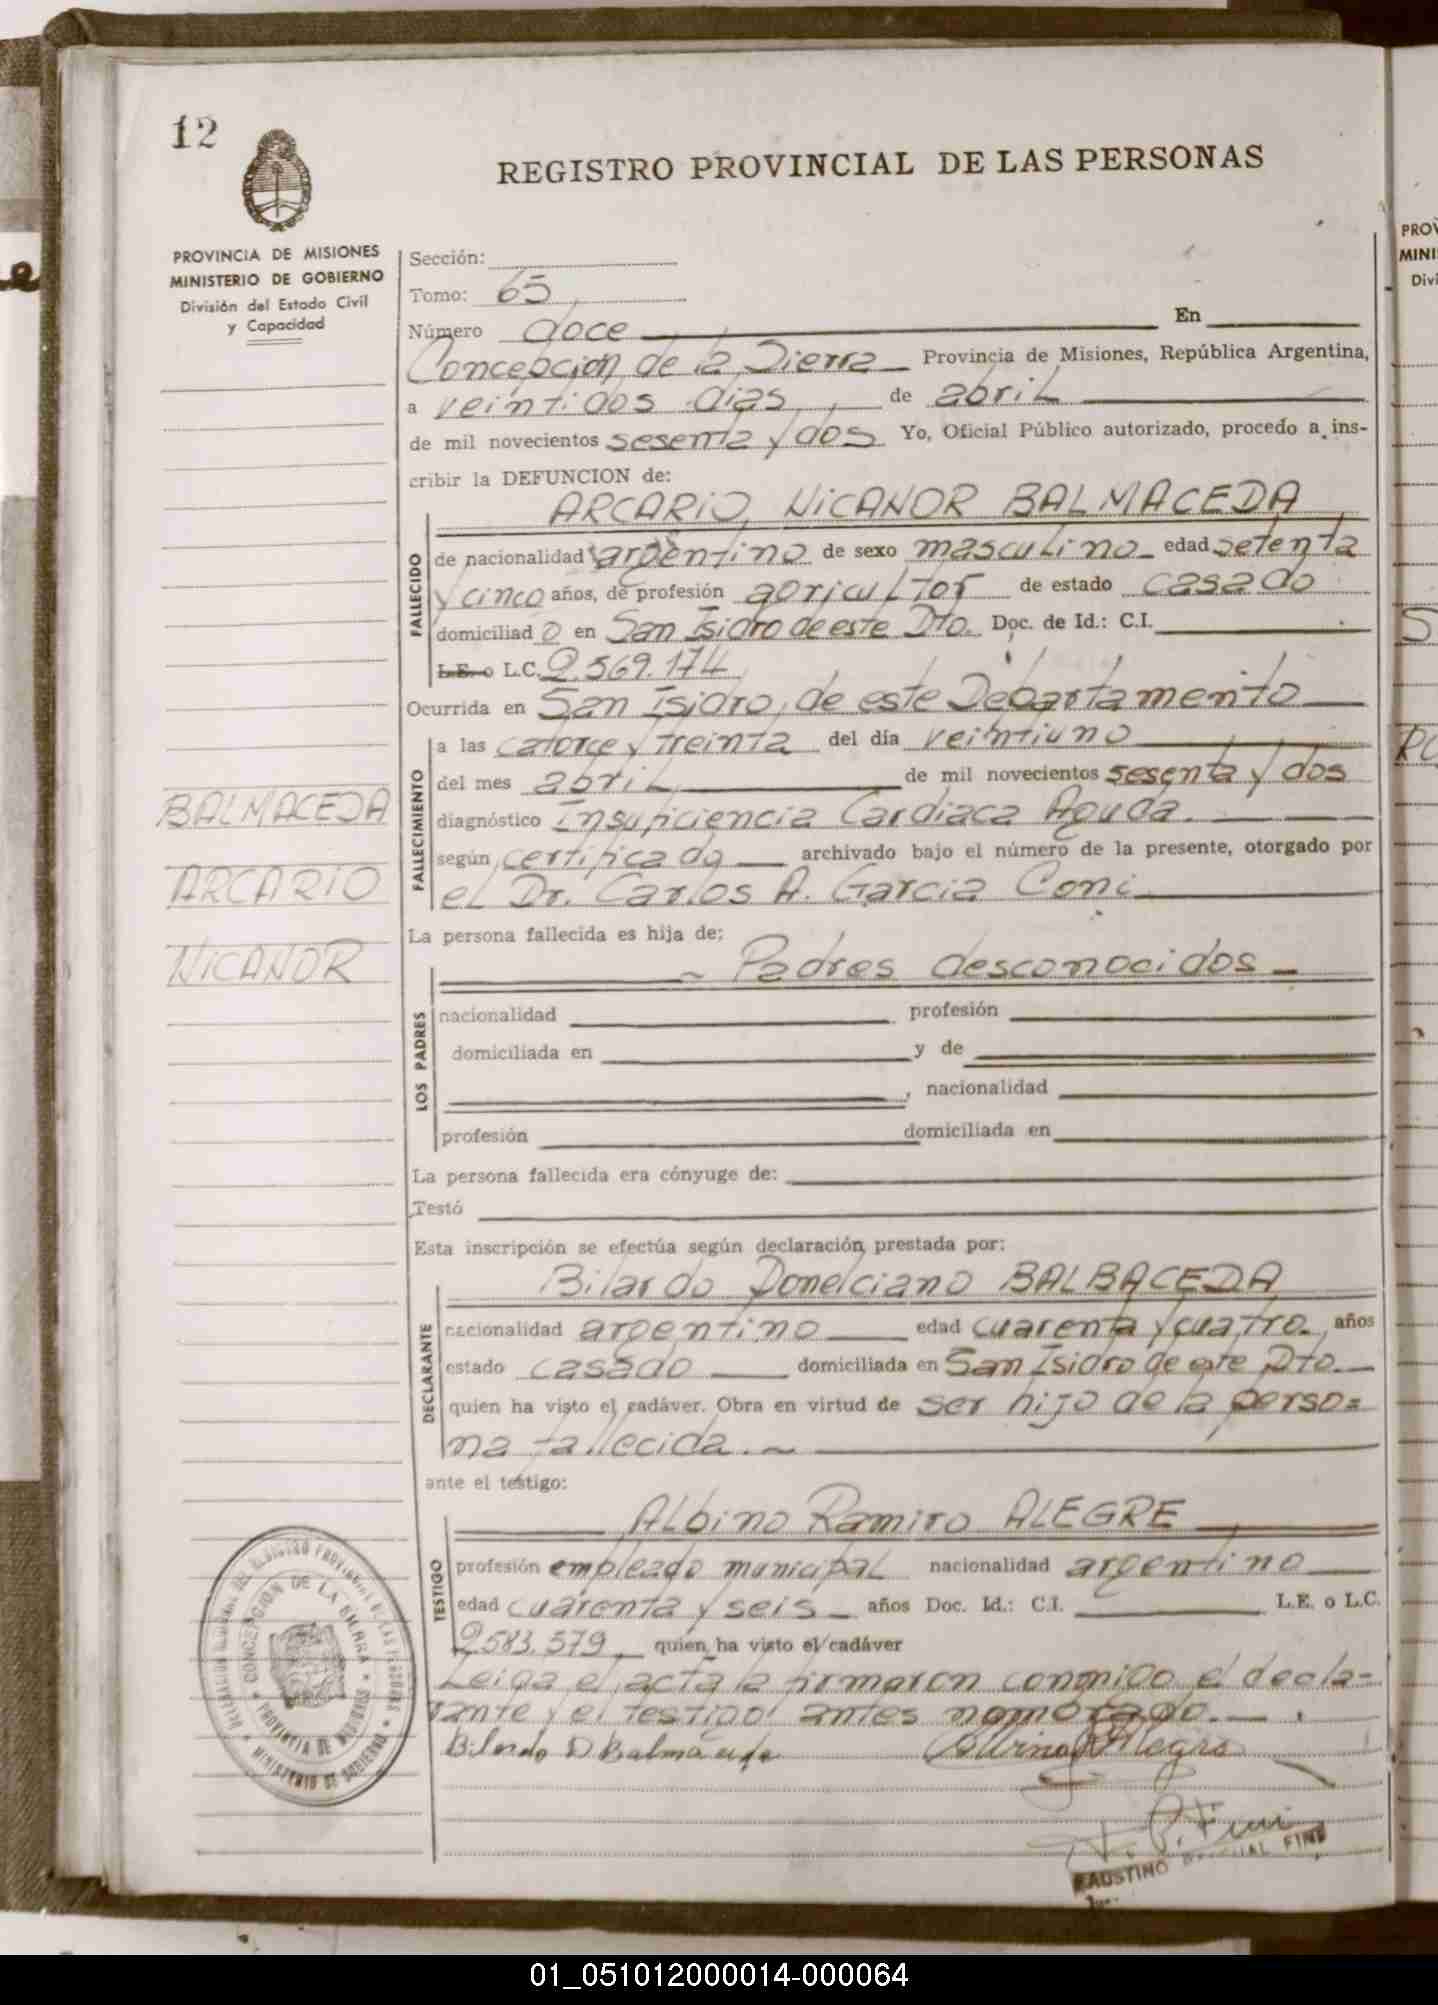 12
REGISTRO PROVINCIAL DE LAS PERSONAS
PROVINCIA DE MISIONES
MINISTERIO DE GOBIERNO
División del Estado Civil
y Capacidad
Sección:
Tomo: 65
Número doce En
Concepción de la Sierra Provincia de Misiones, República Argentina,
a veintidos dias de abril
de mil novecientos sesenta y dos Yo, Oficial Público autorizado, procedo a ins-
cribir la DEFUNCION de:
ARCARIO, NICANOR BALMACEDA
FALLECIDO
de nacionalidad argentino de sexo masculino edad setenta
y cinco años, de profesión agricultor de estado casado
domiciliad o en San Isidro de este Dto. Doc. de Id.: C.I.
L.E. o L.C. 2.569.174
Ocurrida en San Isidro, de este Departamento
FALLECIMIENTO
a las catorce y treinta del día veintiuno
del mes abril de mil novecientos sesenta y dos
diagnóstico Insuficiencia Cardiaca Aguda.
según certificado archivado bajo el número de la presente, otorgado por
el Dr. Carlos A. Garcia Coni
BALMACEDA
ARCARIO
NICANOR
La persona fallecida es hija de:
Padres desconocidos
LOS PADRES
nacionalidad profesión
domiciliada en y de
, nacionalidad
profesión domiciliada en
La persona fallecida era cónyuge de:
Testó
Esta inscripción se efectúa según declaración prestada por:
Bilardo Donelciano BALBACEDA
DECLARANTE
nacionalidad argentino edad cuarenta y cuatro años
estado casado domiciliada en San Isidro de este Dto.
quien ha visto el cadáver. Obra en virtud de ser hijo de la perso=
na fallecida.
ante el testigo:
Albino Ramiro ALEGRE
TESTIGO
profesión empleado municipal nacionalidad argentino
edad cuarenta y seis años Doc. Id.: C.I. L.E. o L.C.
2.583.579 quien ha visto el cadáver
Leida el acta la firmaron conmigo el decla-
rante y el testigo antes nombrado.
Bilardo D Balmaceda Albino R Alegre
CONCEPCION DE LA SIERRA
PROVINCIA DE MISIONES
MINISTERIO DE GOBIERNO
FAUSTINO PASCUAL FINI
PROV
MINI
Divi
01_051012000014-000064